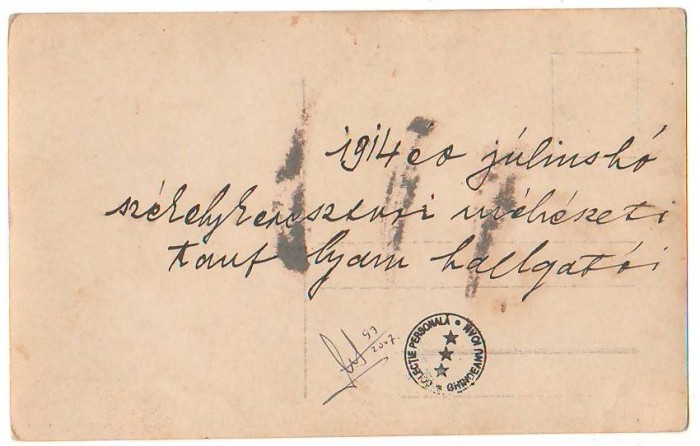 1914 es júliushó
székelykeresztúri méhészeti
tanf lyam hallgatói
97
2007.
COLECȚIE PERSONALĂ * GHINDEANU IOAN *